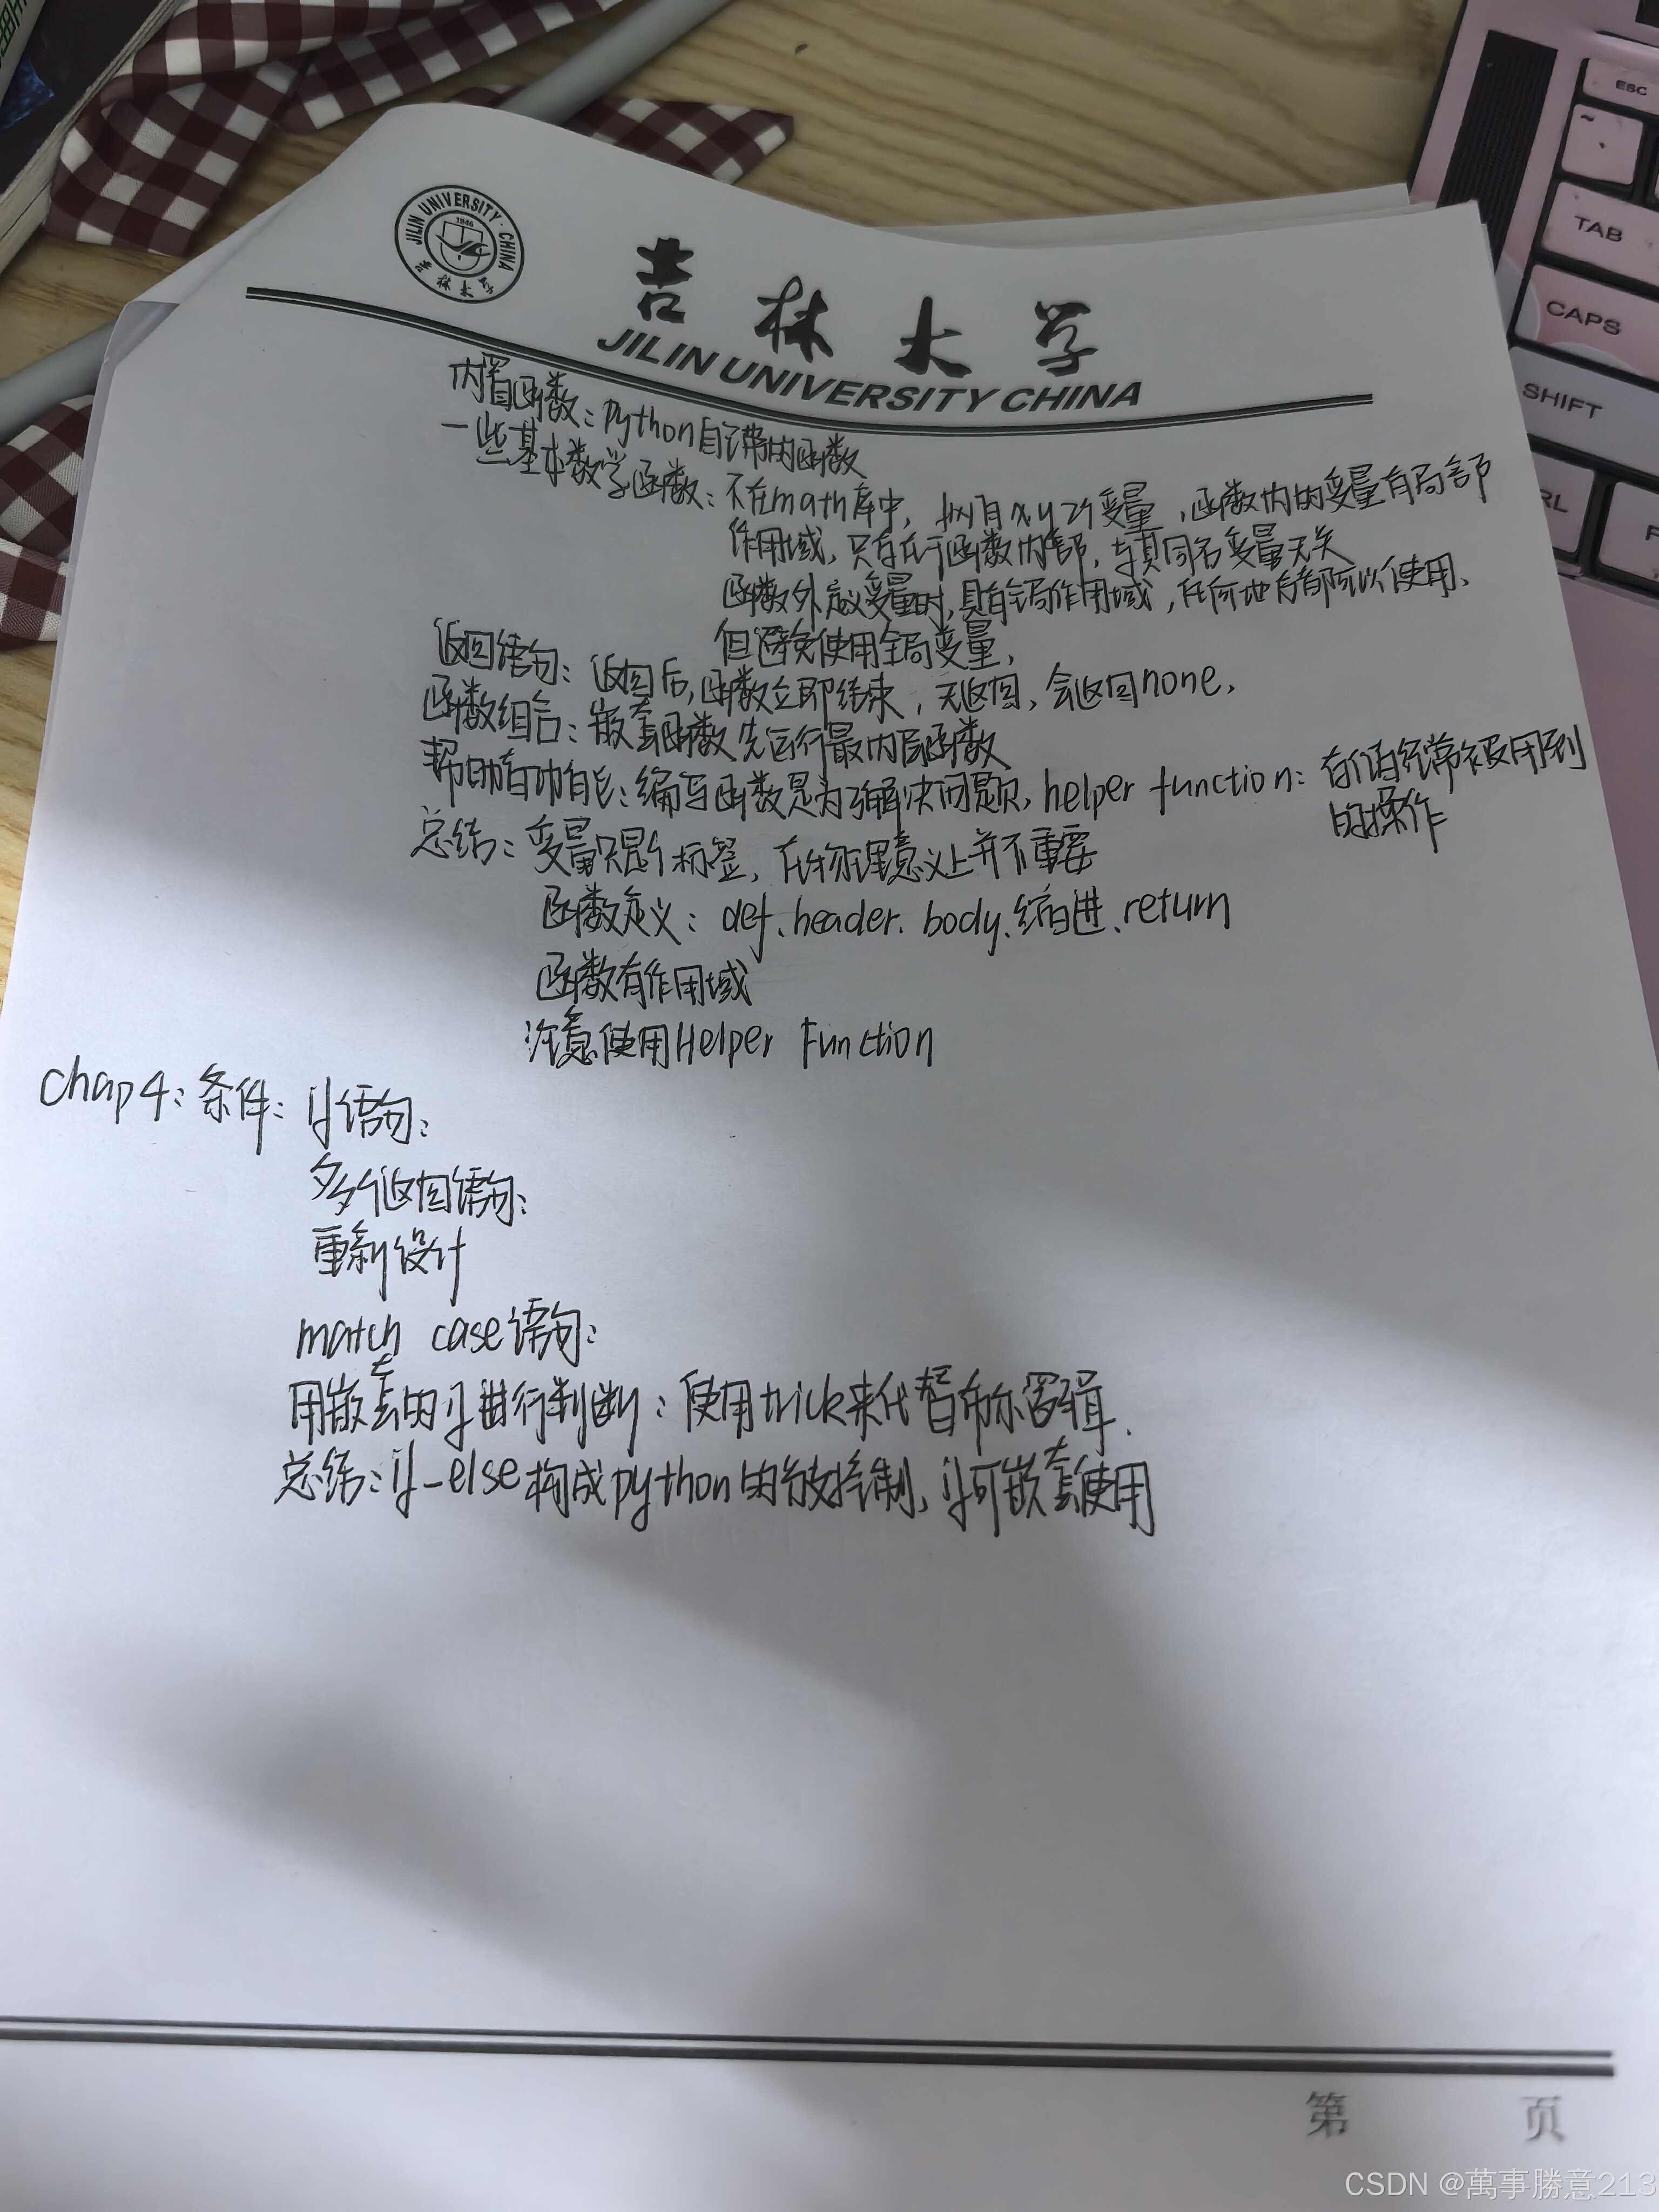 JILIN UNIVERSITY · CHINA
1946
吉林大学
吉林大学
JILIN UNIVERSITY CHINA
内置函数：python自带的函数
一些基本数学函数：不在math库中，拟有x,y 2个变量，函数内的变量有局部
作用域，只存在于函数内部，与其同名变量无关
函数外定义变量时，具有全局作用域，任何地方都可以使用、
但避免使用全局变量，
返回语句：返回后，函数立即结束，无返回，会返回none，
函数组合：嵌套函数先运行最内层函数
帮助者功能：编写函数是为了解决问题，helper function：存储经常被用到
的操作
总结：变量只是个标签，在物理意义上并不重要
函数定义：def、header、body、缩进、return
函数有作用域
注意使用Helper Function
chap4：条件：if语句：
多个返回语句：
重新设计
match case语句：
用嵌套的if进行判断：使用trick来代替布尔逻辑.
总结：if-else构成python的分支控制，if可嵌套使用
第 页
ESC
~
TAB
CAPS
SHIFT
RL
F
CSDN @萬事勝意213